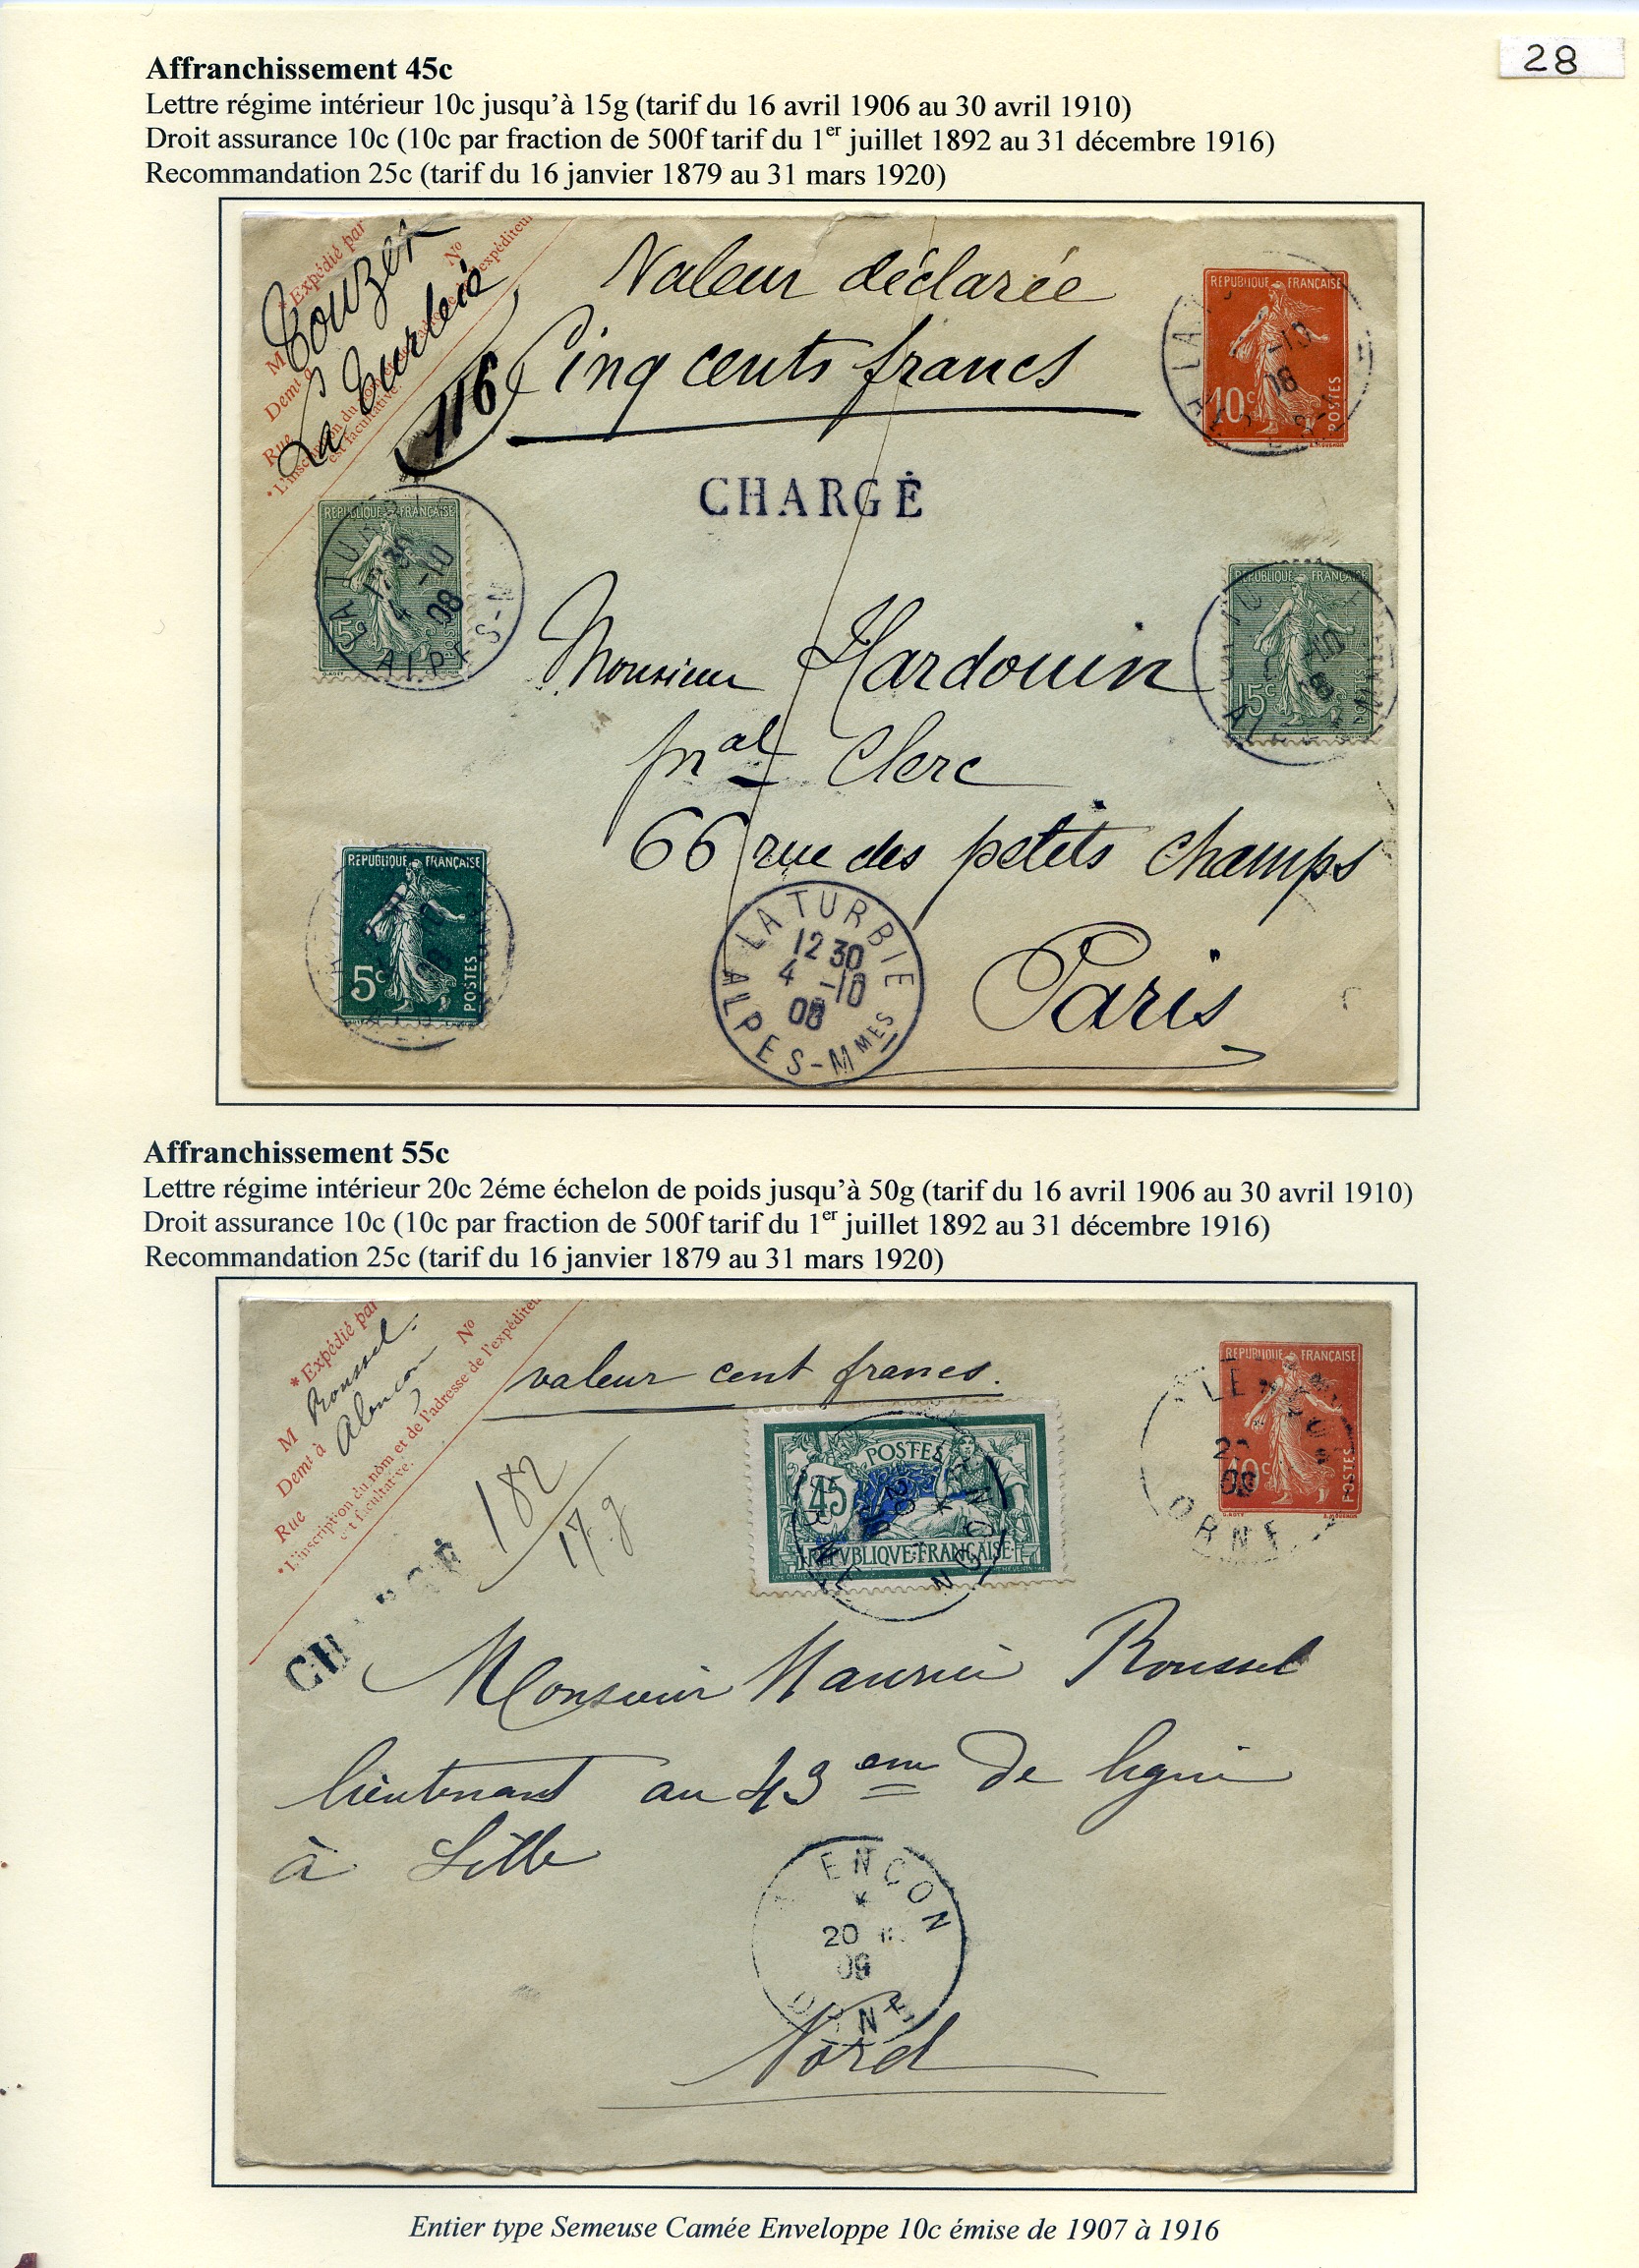 28
Affranchissement 45c
Lettre régime intérieur 10c jusqu'à 15g (tarif du 16 avril 1906 au 30 avril 1910)
Droit assurance 10c (10c par fraction de 500f tarif du 1er juillet 1892 au 31 décembre 1916)
Recommandation 25c (tarif du 16 janvier 1879 au 31 mars 1920)
* Expédié par
M
Demt à
Rue
Nº
*L'inscription du
est facultative.
116
Valeur déclarée
Cinq cents francs
REPUBLIQUE FRANÇAISE
10c
POSTES
CHARGÉ
REPUBLIQUE FRANÇAISE
15c
LA TUR
12 30
4 -10
08
ALPES-M
REPUBLIQUE FRANÇAISE
15c
POSTES
Monsieur Hardouin
pal Clerc
66 rue des petits champs
Paris
REPUBLIQUE FRANÇAISE
5c
POSTES
LA TURBIE
12 30
4 -10
08
ALPES-MMES
Affranchissement 55c
Lettre régime intérieur 20c 2éme échelon de poids jusqu'à 50g (tarif du 16 avril 1906 au 30 avril 1910)
Droit assurance 10c (10c par fraction de 500f tarif du 1er juillet 1892 au 31 décembre 1916)
Recommandation 25c (tarif du 16 janvier 1879 au 31 mars 1920)
* Expédié par
M Roussel
Demt à Alençon
Rue
Nº
*L'inscription du nom et de l'adresse de l'expéditeur
est facultative.
valeur cent francs.
182
17 g
POSTES
45
REPVBLIQVE FRANÇAISE
REPUBLIQUE FRANÇAISE
10c
POSTES
ORNE
Monsieur Maurice Roussel
lieutenant au 43 eme de ligne
à Lille
ENÇON
20
09
Nord
Entier type Semeuse Camée Enveloppe 10c émise de 1907 à 1916